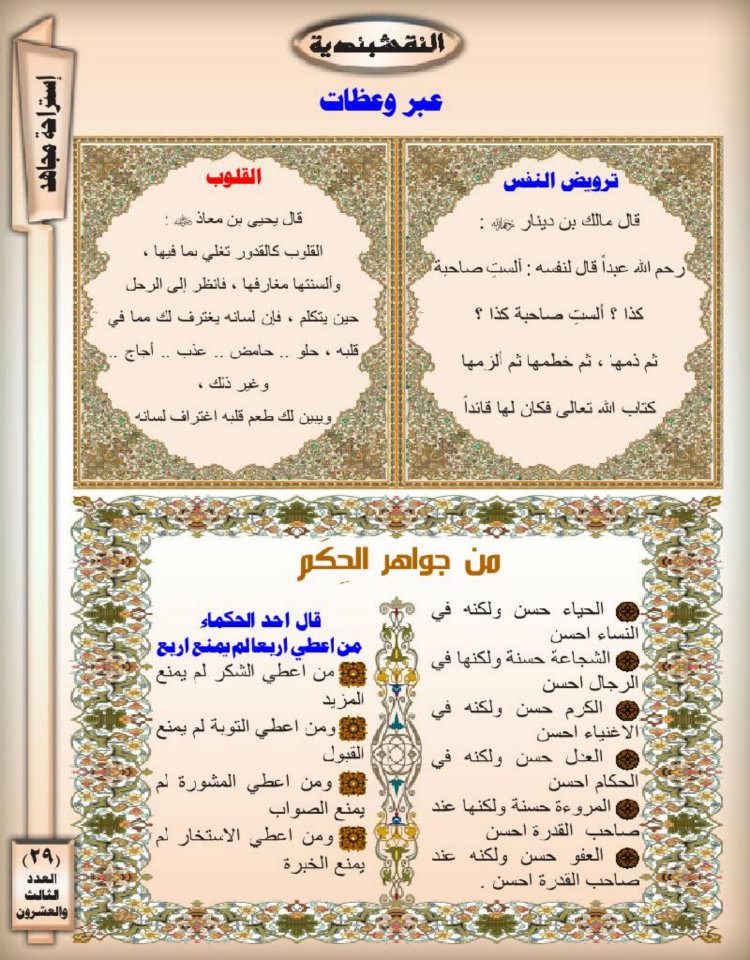 النقشبندية
إستراحة مجاهد
عبر وعظات
ترويض النفس
قال مالك بن دينار رحمه الله :
رحم الله عبداً قال لنفسه : ألستِ صاحبة
كذا ؟ ألستِ صاحبة كذا ؟
ثم ذمها ، ثم خطمها ثم ألزمها
كتاب الله تعالى فكان لها قائداً
القلوب
قال يحيى بن معاذ :
القلوب كالقدور تغلي بما فيها ،
وألسنتها مغارفها ، فانظر إلى الرجل
حين يتكلم ، فإن لسانه يغترف لك مما في
قلبه ، حلو .. حامض .. عذب .. أجاج ..
وغير ذلك ،
ويبين لك طعم قلبه اغتراف لسانه
من جواهر الحِكَم
الحياء حسن ولكنه في
النساء احسن
الشجاعة حسنة ولكنها في
الرجال احسن
الكرم حسن ولكنه في
الاغنياء احسن
العدل حسن ولكنه في
الحكام احسن
المروءة حسنة ولكنها عند
صاحب القدرة احسن
العفو حسن ولكنه عند
صاحب القدرة احسن .
قال احد الحكماء
من اعطي اربعا لم يمنع اربع
من اعطي الشكر لم يمنع
المزيد
ومن اعطي التوبة لم يمنع
القبول
ومن اعطي المشورة لم
يمنع الصواب
ومن اعطي الاستخار لم
يمنع الخبرة
(٢٩)
العدد
الثالث
والعشرون